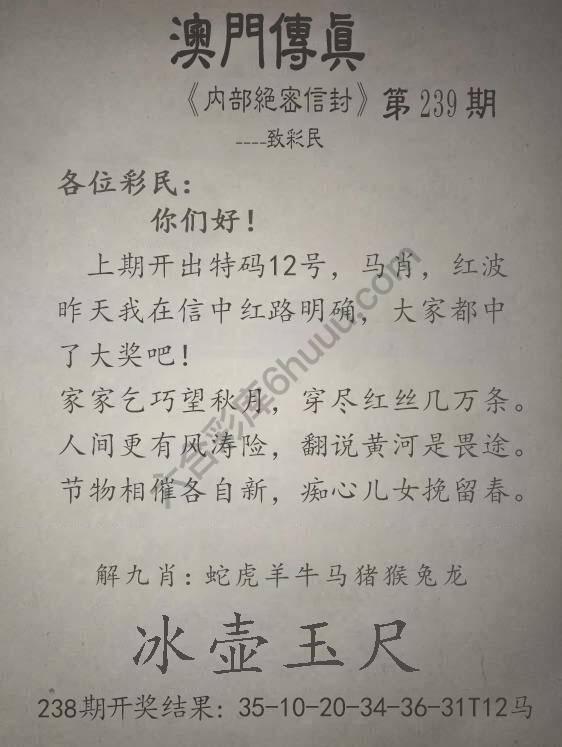 澳門傳真
《内部絕密信封》第239期
----致彩民
各位彩民：
你们好！
上期开出特码12号，马肖，红波
昨天我在信中红路明确，大家都中
了大奖吧！
家家乞巧望秋月，穿尽红丝几万条。
人间更有风涛险，翻说黄河是畏途。
节物相催各自新，痴心儿女挽留春。
解九肖：蛇虎羊牛马猪猴兔龙
冰壶玉尺
238期开奖结果：35-10-20-34-36-31T12马
六合彩库6huuu.com